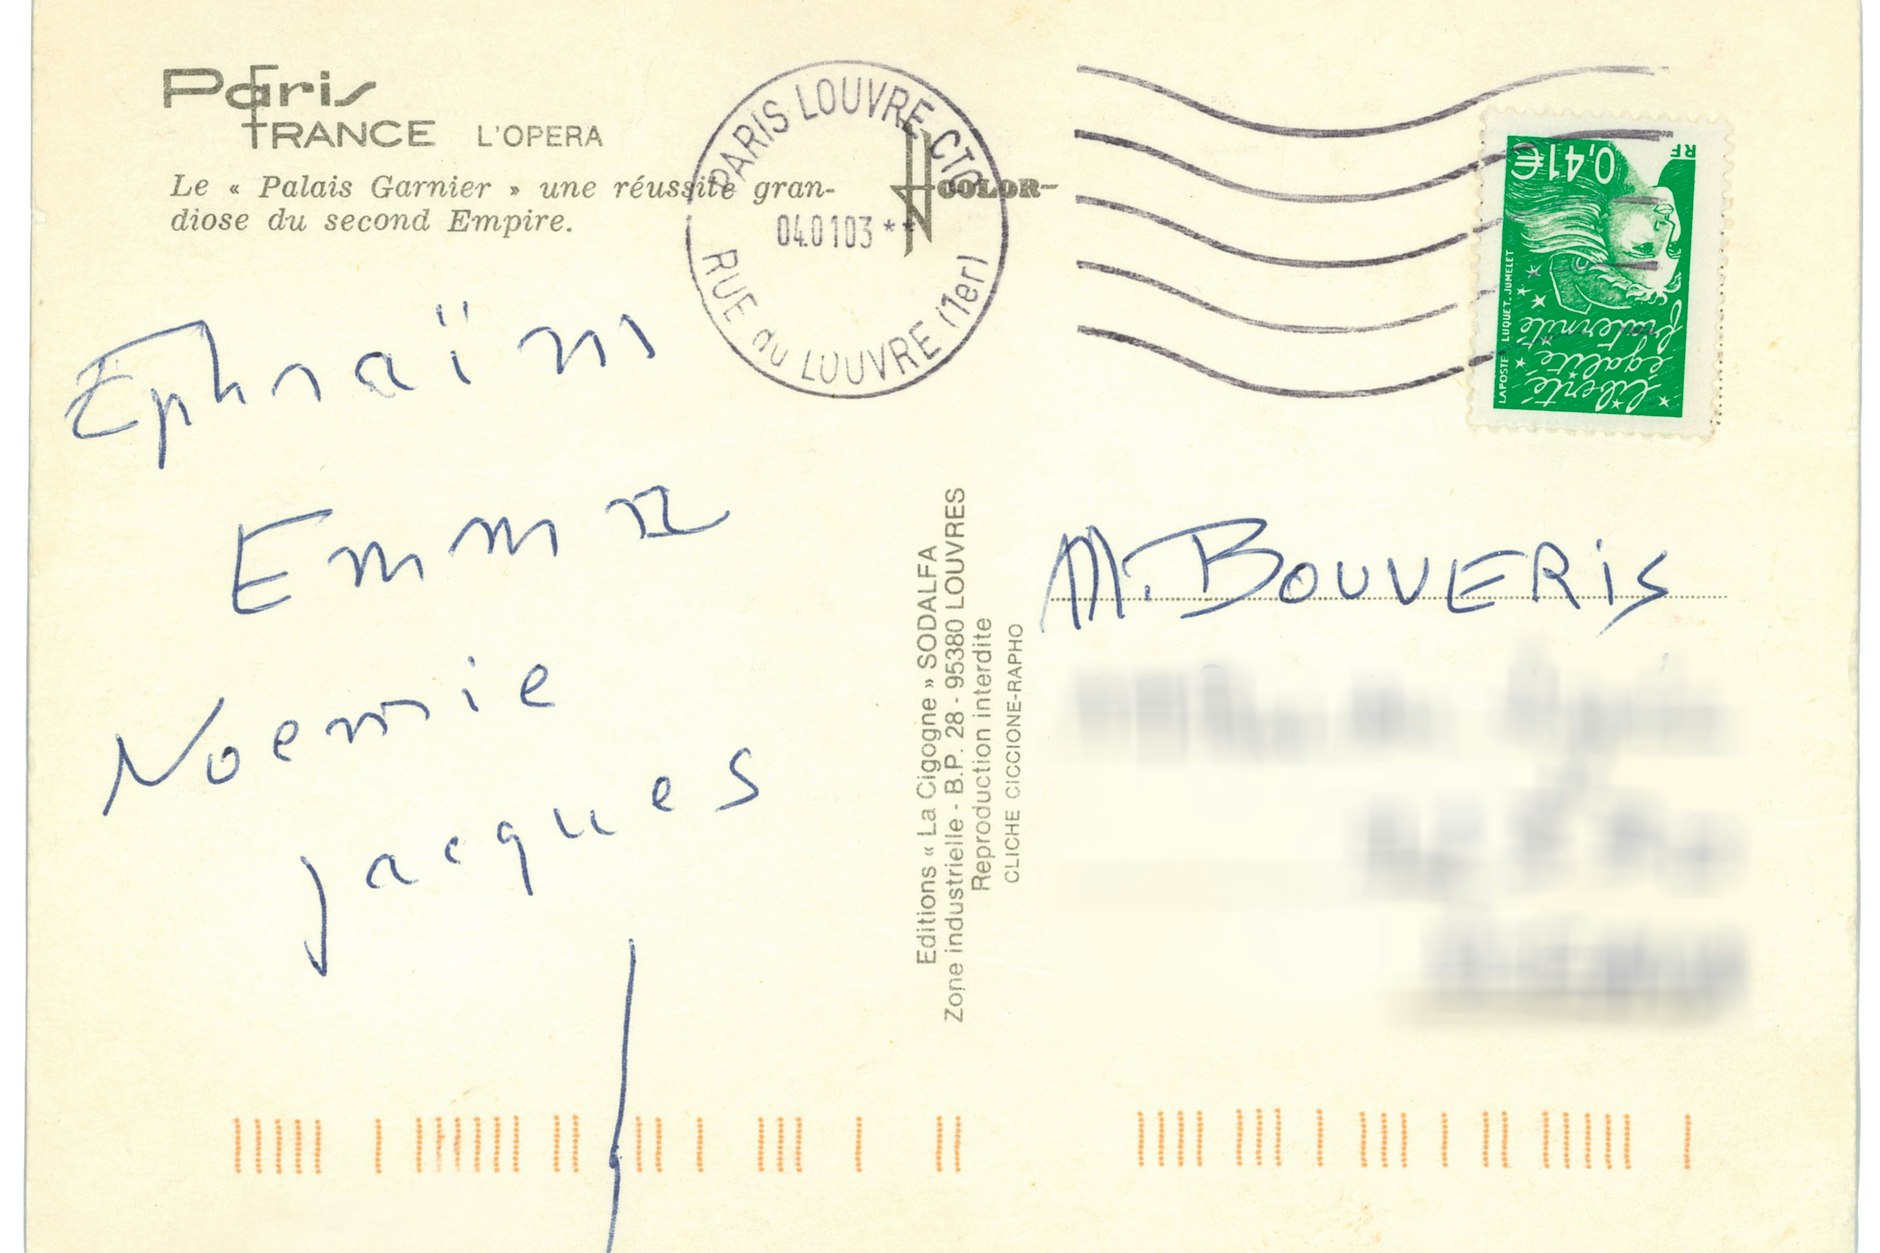 Paris
FRANCE L'OPERA
Le « Palais Garnier » une réussite gran-
diose du second Empire.
PARIS LOUVRE CTC
040103 **
RUE du LOUVRE (1er)
COLOR
0,41€
RF
liberté
égalité
fraternité
LA POSTE LUQUET. JUMELET
Ephraïm
Emma
Noemie
Jacques
Editions « La Cigogne » SODALFA
Zone industrielle - B.P. 28 - 95380 LOUVRES
Reproduction interdite
CLICHE CICCIONE-RAPHO
M. BOUVERIS